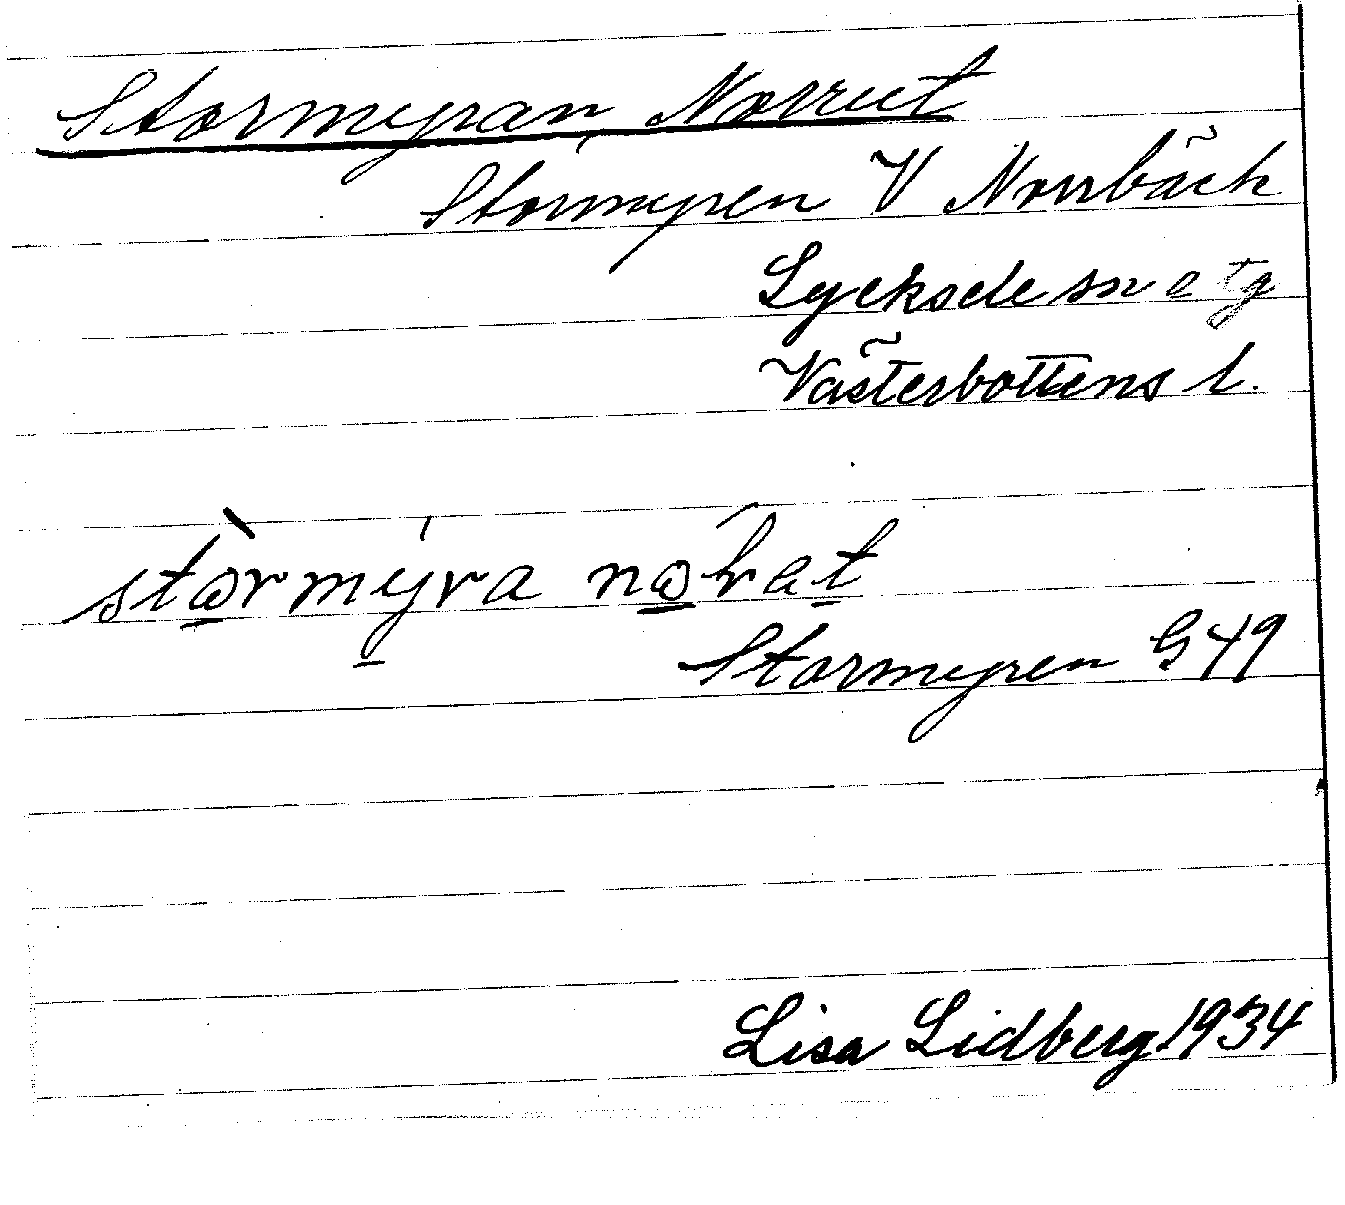 Stormyran Norrut
Stormyren V Norrbäck
Lycksele sn o tg
Västerbottens l.
stòrmýra norat
Stormyren G 49
Lisa Lidberg 1934